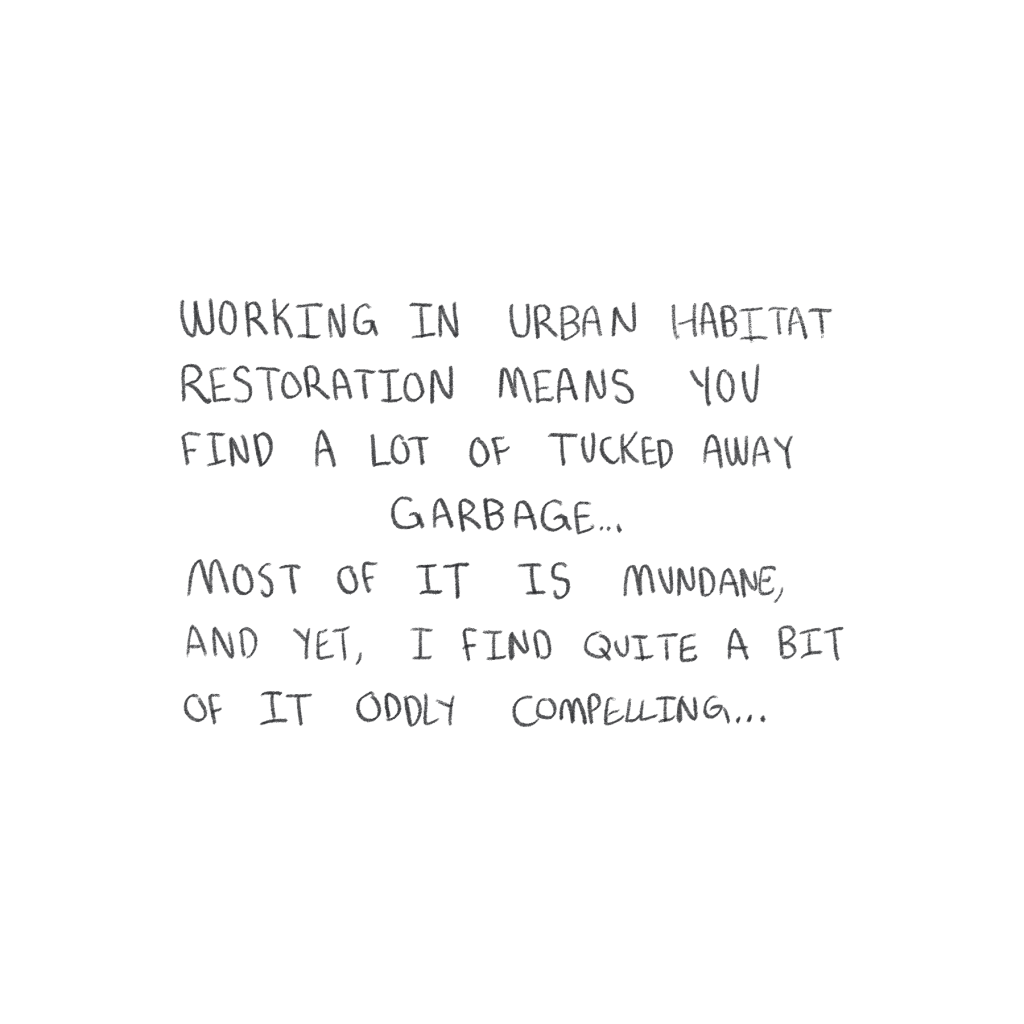 WORKING IN URBAN HABITAT
RESTORATION MEANS YOU
FIND A LOT OF TUCKED AWAY
GARBAGE...
MOST OF IT IS MUNDANE,
AND YET, I FIND QUITE A BIT
OF IT ODDLY COMPELLING...